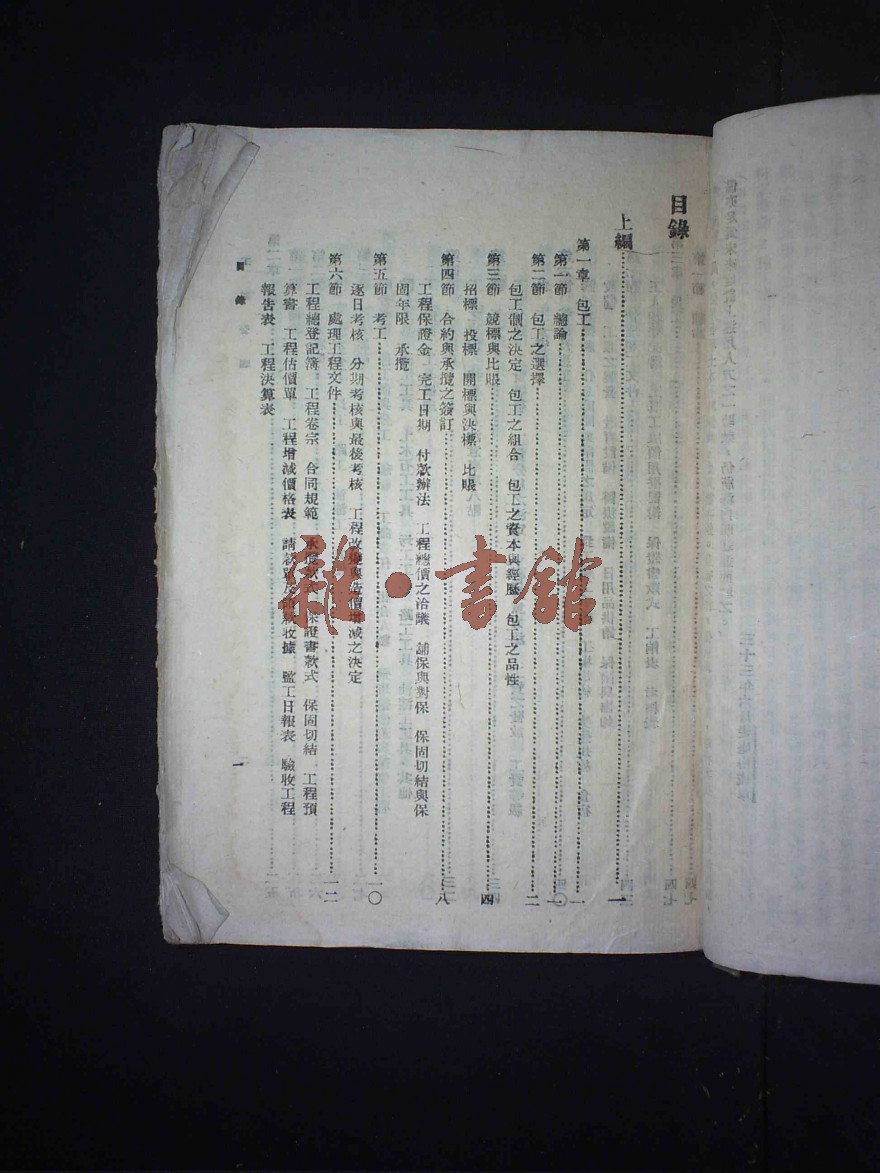 目錄
上編……一
第一章 包工……一
第一節 總論……一
第二節 包工之選擇……二
包工制之決定 包工之組合 包工之資本與經歷 包工之品性
第三節 競標與比賬……四
招標 投標 開標與決標 比賬
第四節 合約與承攬之簽訂……八
工程保證金 完工日期 付款辦法 工程總價之洽議 舖保與對保 保固切結與保
固年限 承攬
第五節 考工……一〇
逐日考核 分期考核與最後考核 工程改變與造價增減之決定
第六節 處理工程文件……一二
工程總登記簿 工程卷宗 合同規範 承攬款式 保證書款式 保固切結 工程預
算書 工程估價單 工程增減價格表 請款單及領款收據 監工日報表 驗收工程
報告表 工程決算表
目錄
一
雜·書館